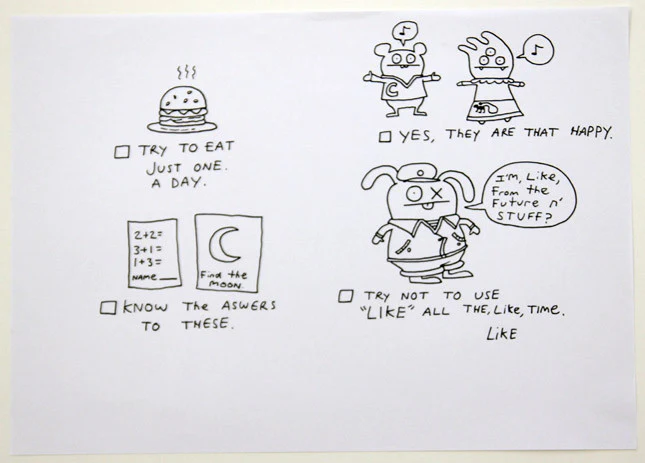 TRY TO EAT
JUST ONE.
A DAY.
2+2=
3+1=
1+3=
NAME
Find the
MOON.
KNOW The ASWERS
TO THESE.
YES, THEY ARE THAT HAPPY.
I'm, Like,
From the
Future n'
STUFF?
TRY NOT TO USE
"LIKE" ALL THE, Like, TIME.
LiKE